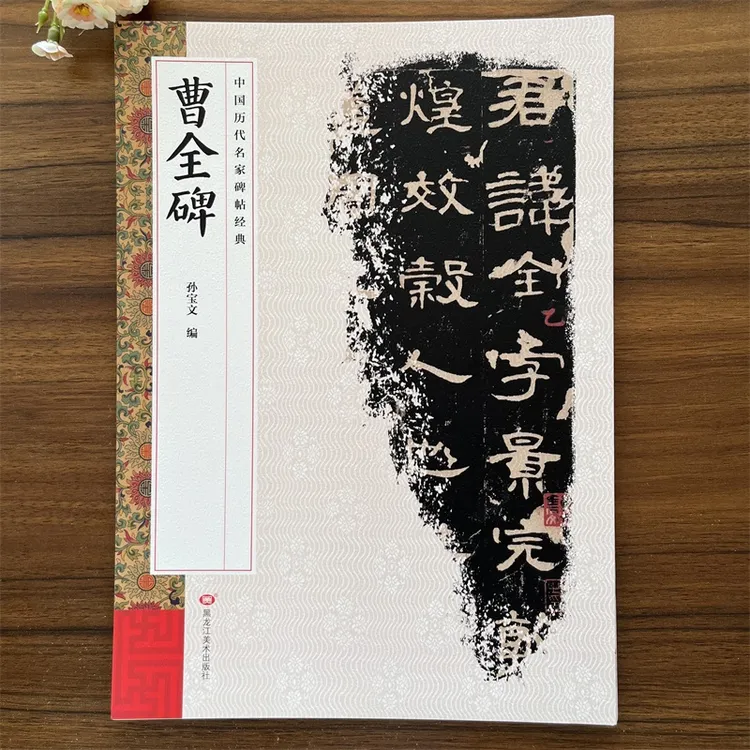 曹全碑
中国历代名家碑帖经典
孙宝文 编
君諱全字景完敦
煌效穀人也
黑龙江美术出版社